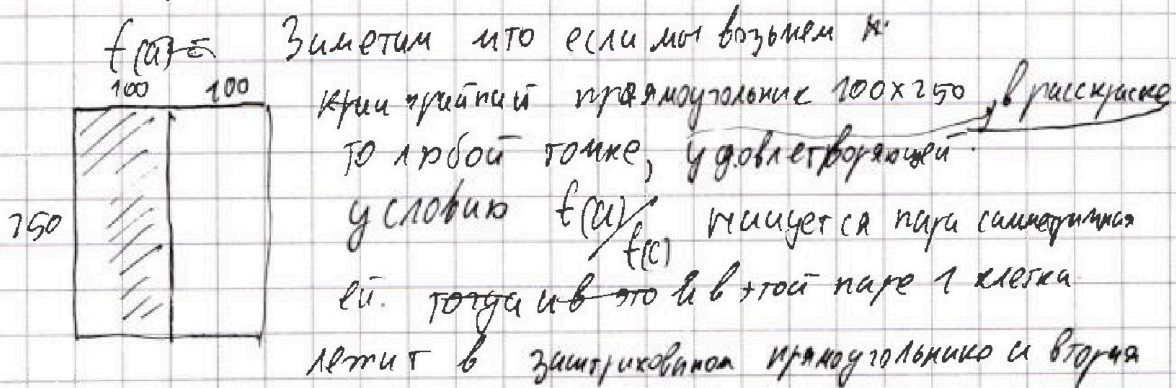 f(a) = Заметим что если мы возьмем к
100 100
прямоугольник 100x250, в расскраске
то любой точке, удовлетворяющей
250 условию f(a)/f(c) ищется пара симметричная
ей. тогда и в это И в этой паре 1 клетка
лежит в заштрихованом прямоугольнико и вторая